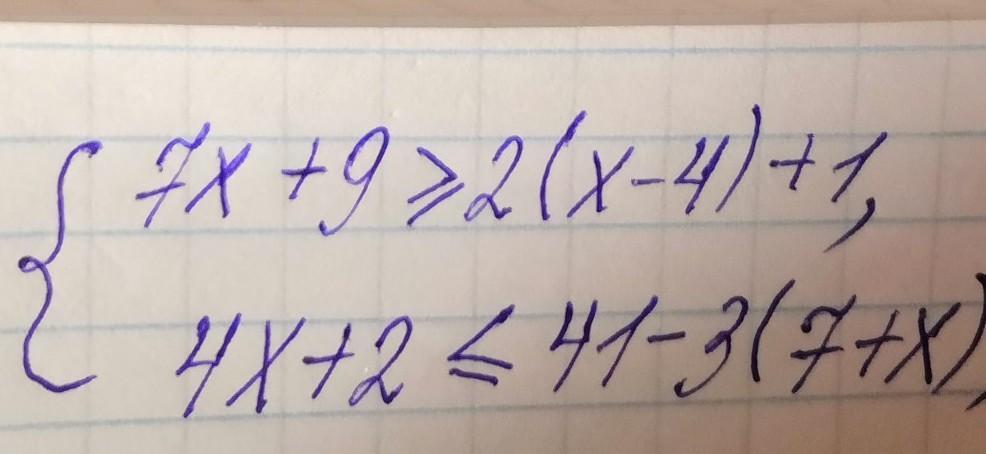 7x+9⩾2(x-4)+1,
4x+2≤41-3(7+x)